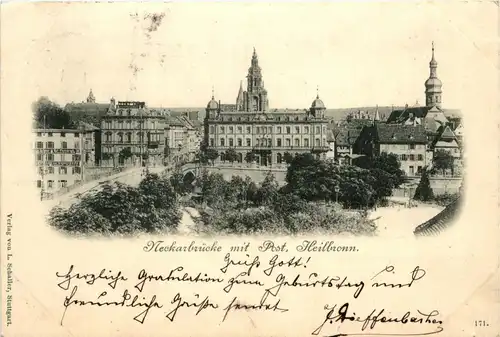 Neckarbrücke mit Post, Heilbronn.
Grüß Gott!
Herzliche Gratulation zum Geburtstag und
freundliche Grüße sendet
J. Dieffenbacher.
Verlag von L. Schaller, Stuttgart.
171.